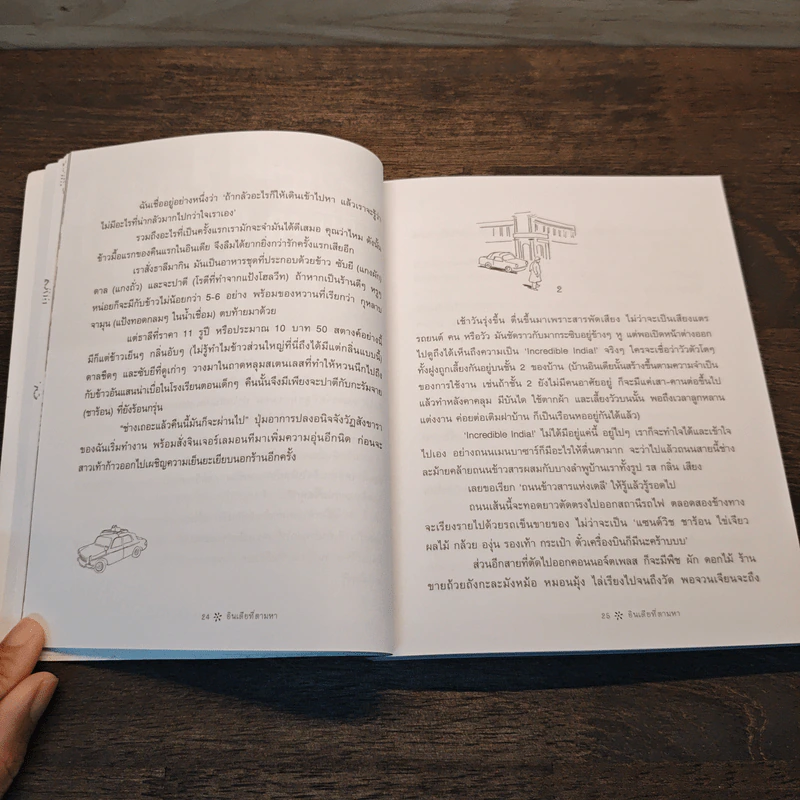 ฉันเชื่ออยู่อย่างหนึ่งว่า 'ถ้ากลัวอะไรก็ให้เดินเข้าไปหา แล้วเราจะรู้ว่า
ไม่มีอะไรที่น่ากลัวมากไปกว่าใจเราเอง'
รวมถึงอะไรที่เป็นครั้งแรกเรามักจะจำมันได้ดีเสมอ คุณว่าไหม ดังนั้น
ข้าวมื้อแรกของคืนแรกในอินเดีย จึงลืมได้ยากยิ่งกว่ารักครั้งแรกเสียอีก
เราสั่งธาลีมากิน มันเป็นอาหารชุดที่ประกอบด้วยข้าว ซับยี (แกงผัก)
ดาล (แกงถั่ว) และจะปาตี (โรตีที่ทำจากแป้งโฮลวีท) ถ้าหากเป็นร้านดีๆ หรูๆ
หน่อยก็จะมีกับข้าวไม่น้อยกว่า 5-6 อย่าง พร้อมของหวานที่เรียกว่า กุหลาบ
จามุน (แป้งทอดกลมๆ ในน้ำเชื่อม) ตบท้ายมาด้วย
แต่ธาลีที่ราคา 11 รูปี หรือประมาณ 10 บาท 50 สตางค์อย่างนี้
มีก็แต่ข้าวเย็นๆ กลิ่นอับๆ (ไม่รู้ทำไมข้าวส่วนใหญ่ที่นี่ถึงได้มีแต่กลิ่นแบบนี้)
ดาลชืดๆ และซับยีที่ดูเก่าๆ วางมาในถาดหลุมสแตนเลสที่ทำให้หวนนึกไปถึง
กับข้าวอันแสนน่าเบื่อในโรงเรียนตอนเด็กๆ คืนนั้นจึงมีเพียงจะปาตีกับกะรัมจาย
(ชาร้อน) ที่ยังร้อนกรุ่น
"ช่างเถอะแล้วคืนนี้มันก็จะผ่านไป" ปุ่มอาการปลงอนิจจังวัฏสังขารา
ของฉันเริ่มทำงาน พร้อมสั่งจินเจอร์เลมอนทีมาเพิ่มความอุ่นอีกนิด ก่อนจะ
สาวเท้าก้าวออกไปเผชิญความเย็นยะเยียบนอกร้านอีกครั้ง
24 * อินเดียที่ตามหา
2
เช้าวันรุ่งขึ้น ตื่นขึ้นมาเพราะสารพัดเสียง ไม่ว่าจะเป็นเสียงแตร
รถยนต์ คน หรือวัว มันชัดราวกับมากระซิบอยู่ข้างๆ หู แต่พอเปิดหน้าต่างออก
ไปดูถึงได้เห็นถึงความเป็น 'Incredible India!' จริงๆ ใครจะเชื่อว่าวัวตัวโตๆ
ทั้งฝูงถูกเลี้ยงกันอยู่บนชั้น 2 ของบ้าน (บ้านอินเดียนั้นสร้างขึ้นตามความจำเป็น
ของการใช้งาน เช่นถ้าชั้น 2 ยังไม่มีคนอาศัยอยู่ ก็จะมีแค่เสา-คานต่อขึ้นไป
แล้วทำหลังคาคลุม มีบันได ใช้ตากผ้า และเลี้ยงวัวบนนั้น พอถึงเวลาลูกหลาน
แต่งงาน ค่อยต่อเติมฝาบ้าน ก็เป็นเรือนหออยู่กันได้แล้ว)
'Incredible India!' ไม่ได้มีอยู่แค่นี้ อยู่ไปๆ เราก็จะทำใจได้และเข้าใจ
ไปเอง อย่างถนนเมนบาซาร์ก็มีอะไรให้ตื่นตามาก จะว่าไปแล้วถนนสายนี้ช่าง
ละม้ายคล้ายถนนข้าวสารผสมกับบางลำพูบ้านเราทั้งรูป รส กลิ่น เสียง
เลยขอเรียก 'ถนนข้าวสารแห่งเดลี' ให้รู้แล้วรู้รอดไป
ถนนเส้นนี้จะทอดยาวตัดตรงไปออกสถานีรถไฟ ตลอดสองข้างทาง
จะเรียงรายไปด้วยรถเข็นขายของ ไม่ว่าจะเป็น 'แซนด์วิช ชาร้อน ไข่เจียว
ผลไม้ กล้วย องุ่น รองเท้า กระเป๋า ตั๋วเครื่องบินก็มีนะคร้าบบบ'
ส่วนอีกสายที่ตัดไปออกคอนนอจ์ตเพลส ก็จะมีพืช ผัก ดอกไม้ ร้าน
ขายถ้วยถังกะละมังหม้อ หมอนมุ้ง ไล่เรียงไปจนถึงวัด พอจวนเจียนจะถึง
25 * อินเดียที่ตามหา